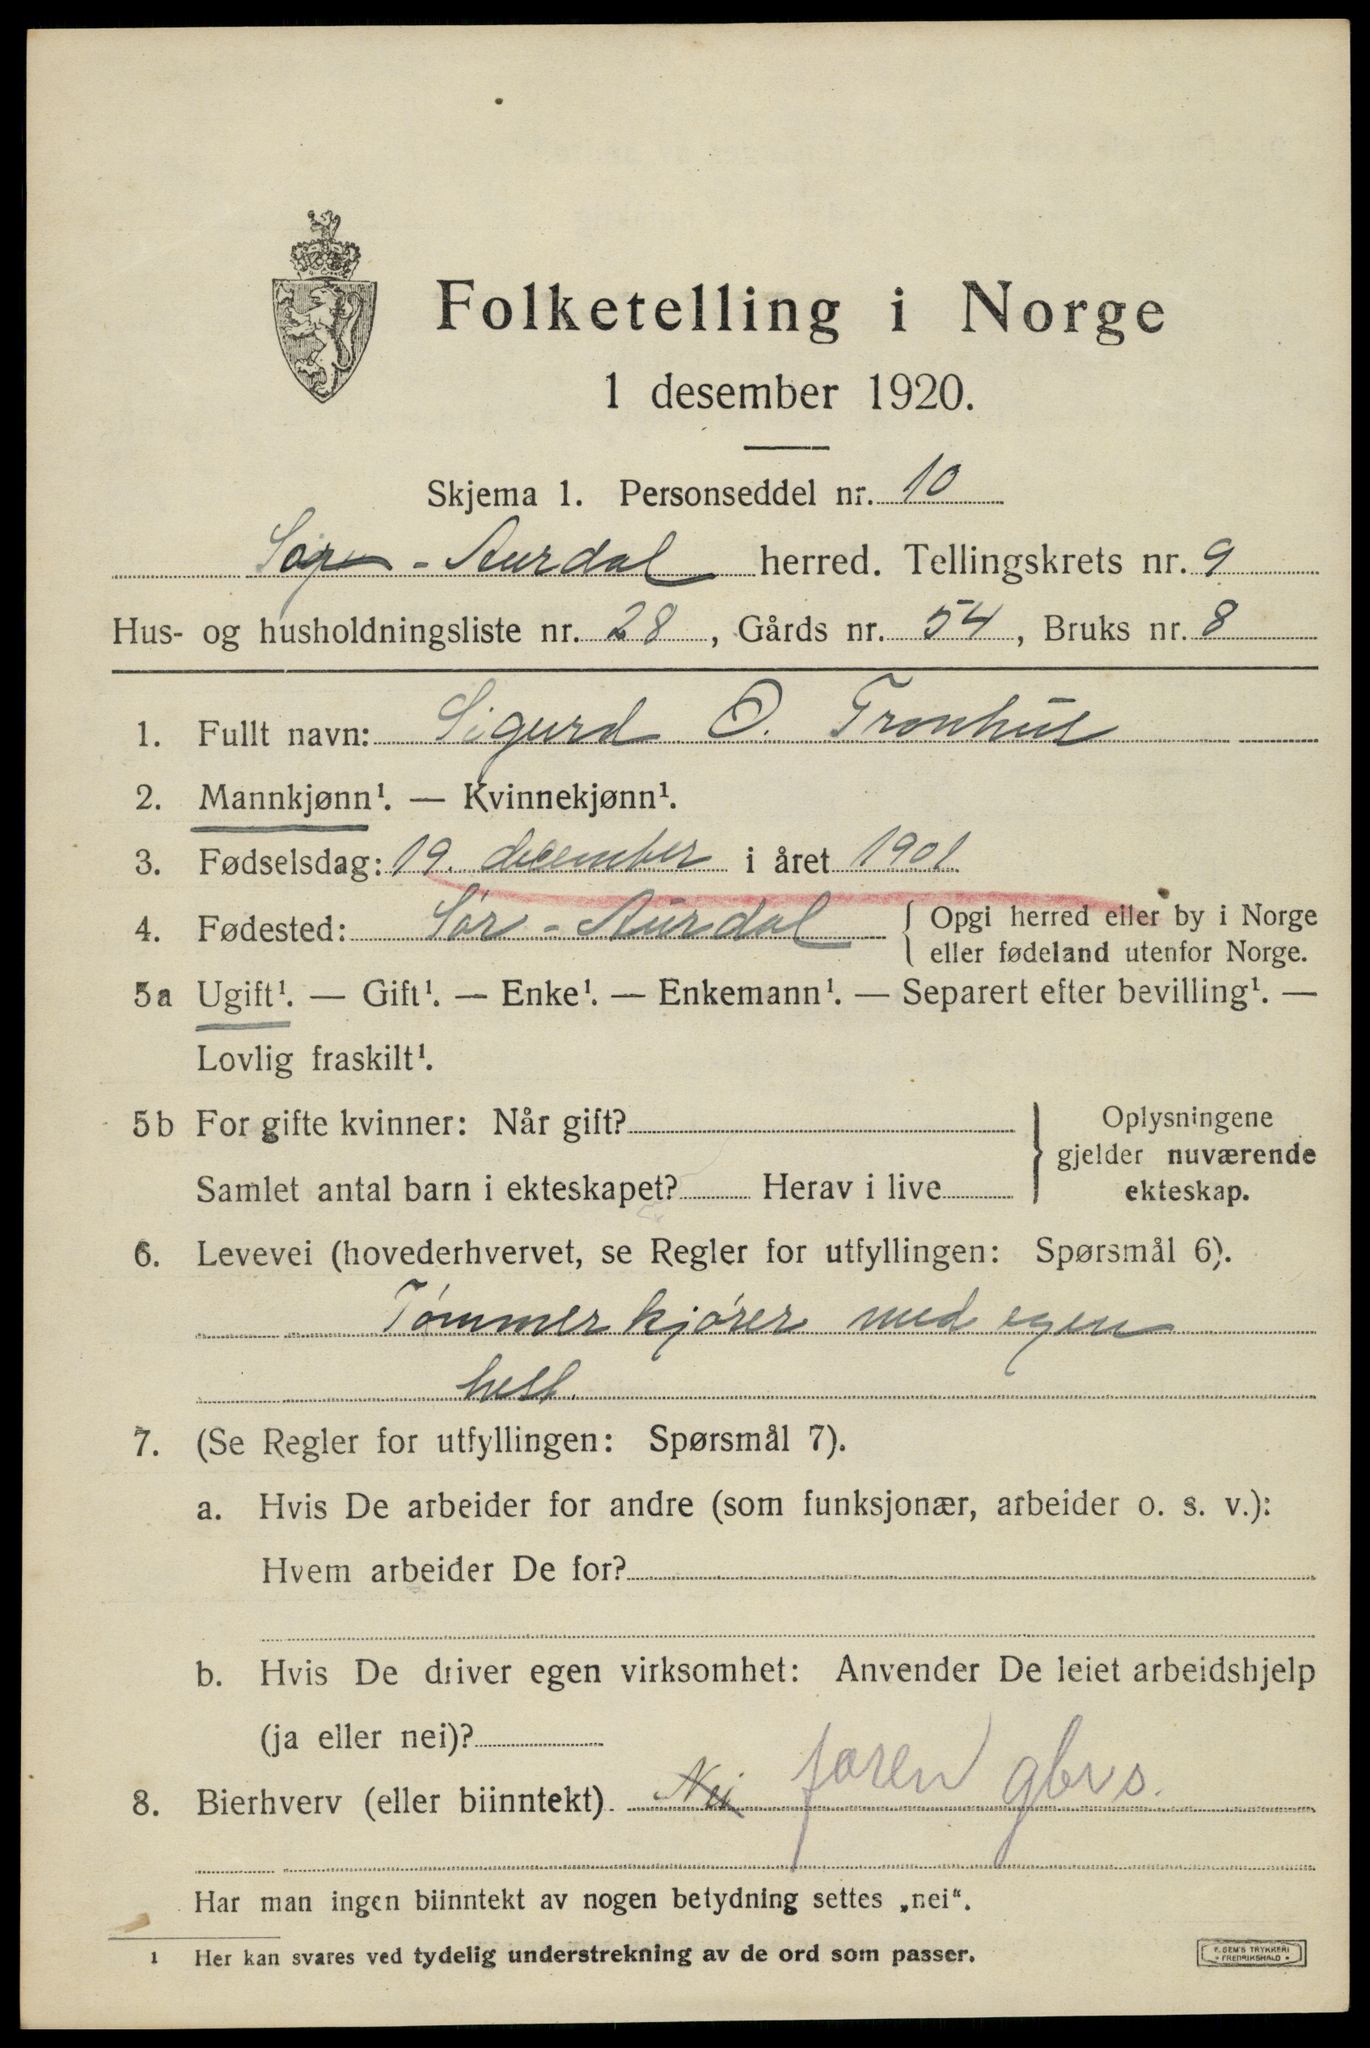 Folketelling i Norge
1 desember 1920.
Skjema 1. Personseddel nr. 10
Sør-Aurdal herred. Tellingskrets nr. 9
Hus- og husholdningsliste nr. 28, Gårds nr. 54, Bruks nr. 8
1. Fullt navn: Sigurd O. Tronhus
2. Mannkjønn¹. — Kvinnekjønn¹.
3. Fødselsdag: 19. december i året 1901
4. Fødested: Sør-Aurdal { Opgi herred eller by i Norge
eller fødeland utenfor Norge.
5a Ugift¹. — Gift¹. — Enke¹. — Enkemann¹. — Separert efter bevilling¹. —
Lovlig fraskilt¹.
5b For gifte kvinner: Når gift?
Samlet antal barn i ekteskapet? Herav i live
} Oplysningene
gjelder nuværende
ekteskap.
6. Levevei (hovederhvervet, se Regler for utfyllingen: Spørsmål 6).
Tømmerkjører med egen
hest.
7. (Se Regler for utfyllingen: Spørsmål 7).
a. Hvis De arbeider for andre (som funksjonær, arbeider o. s. v.):
Hvem arbeider De for?
b. Hvis De driver egen virksomhet: Anvender De leiet arbeidshjelp
(ja eller nei)?
8. Bierhverv (eller biinntekt). Nei faren gbrs.
Har man ingen biinntekt av nogen betydning settes „nei“.
1 Her kan svares ved tydelig understrekning av de ord som passer.
E. SEM'S TRYKKERI
FREDRIKSHALD